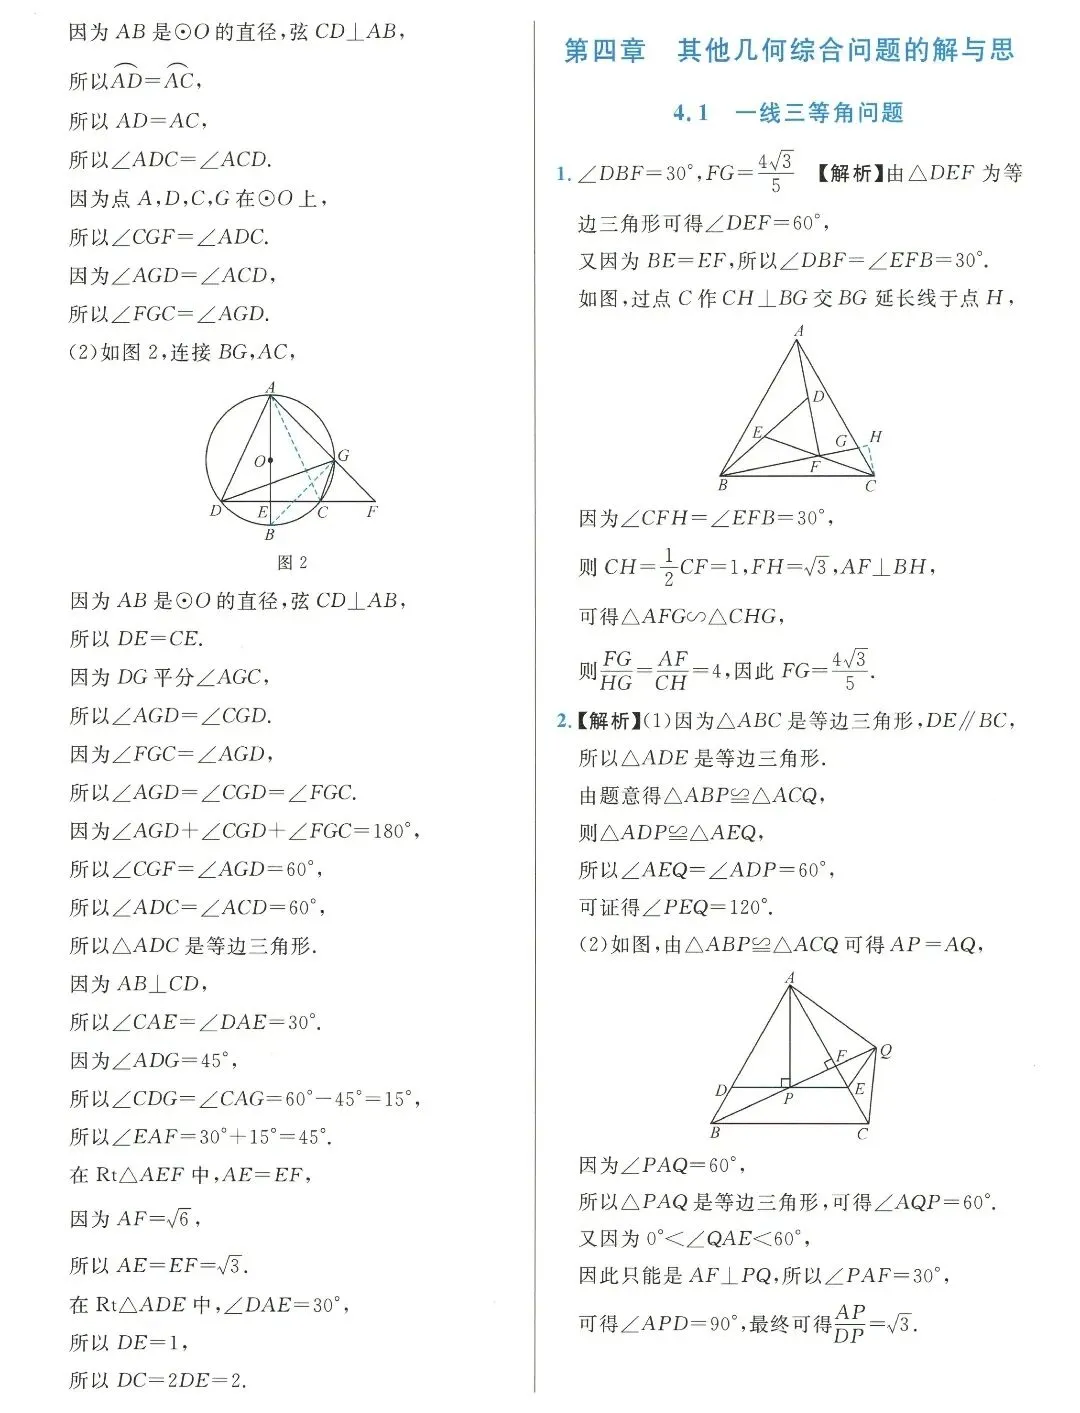 因为 AB 是⊙O 的直径,弦 CD⊥AB,
所以A͡D=A͡C,
所以 AD=AC,
所以∠ADC=∠ACD.
因为点 A,D,C,G 在⊙O 上,
所以∠CGF=∠ADC.
因为∠AGD=∠ACD,
所以∠FGC=∠AGD.
(2)如图 2,连接 BG,AC,
A
O
G
D
E
C
F
B
图 2
因为 AB 是⊙O 的直径,弦 CD⊥AB,
所以 DE=CE.
因为 DG 平分∠AGC,
所以∠AGD=∠CGD.
因为∠FGC=∠AGD,
所以∠AGD=∠CGD=∠FGC.
因为∠AGD+∠CGD+∠FGC=180°,
所以∠CGF=∠AGD=60°,
所以∠ADC=∠ACD=60°,
所以△ADC 是等边三角形.
因为 AB⊥CD,
所以∠CAE=∠DAE=30°.
因为∠ADG=45°,
所以∠CDG=∠CAG=60°-45°=15°,
所以∠EAF=30°+15°=45°.
在 Rt△AEF 中,AE=EF,
因为 AF=√6,
所以 AE=EF=√3.
在 Rt△ADE 中,∠DAE=30°,
所以 DE=1,
所以 DC=2DE=2.
第四章 其他几何综合问题的解与思
4.1 一线三等角问题
1. ∠DBF=30°,FG=4√3/5 【解析】由△DEF 为等
边三角形可得∠DEF=60°,
又因为 BE=EF,所以∠DBF=∠EFB=30°.
如图,过点 C 作 CH⊥BG 交 BG 延长线于点 H,
A
D
E
G
H
F
B
C
因为∠CFH=∠EFB=30°,
则 CH=1/2CF=1,FH=√3,AF⊥BH,
可得△AFG∽△CHG,
则FG/HG=AF/CH=4,因此 FG=4√3/5.
2.【解析】(1)因为△ABC 是等边三角形,DE∥BC,
所以△ADE 是等边三角形.
由题意得△ABP≌△ACQ,
则△ADP≌△AEQ,
所以∠AEQ=∠ADP=60°,
可证得∠PEQ=120°.
(2)如图,由△ABP≌△ACQ 可得 AP=AQ,
A
F
Q
D
P
E
B
C
因为∠PAQ=60°,
所以△PAQ 是等边三角形,可得∠AQP=60°.
又因为 0°<∠QAE<60°,
因此只能是 AF⊥PQ,所以∠PAF=30°,
可得∠APD=90°,最终可得AP/DP=√3.